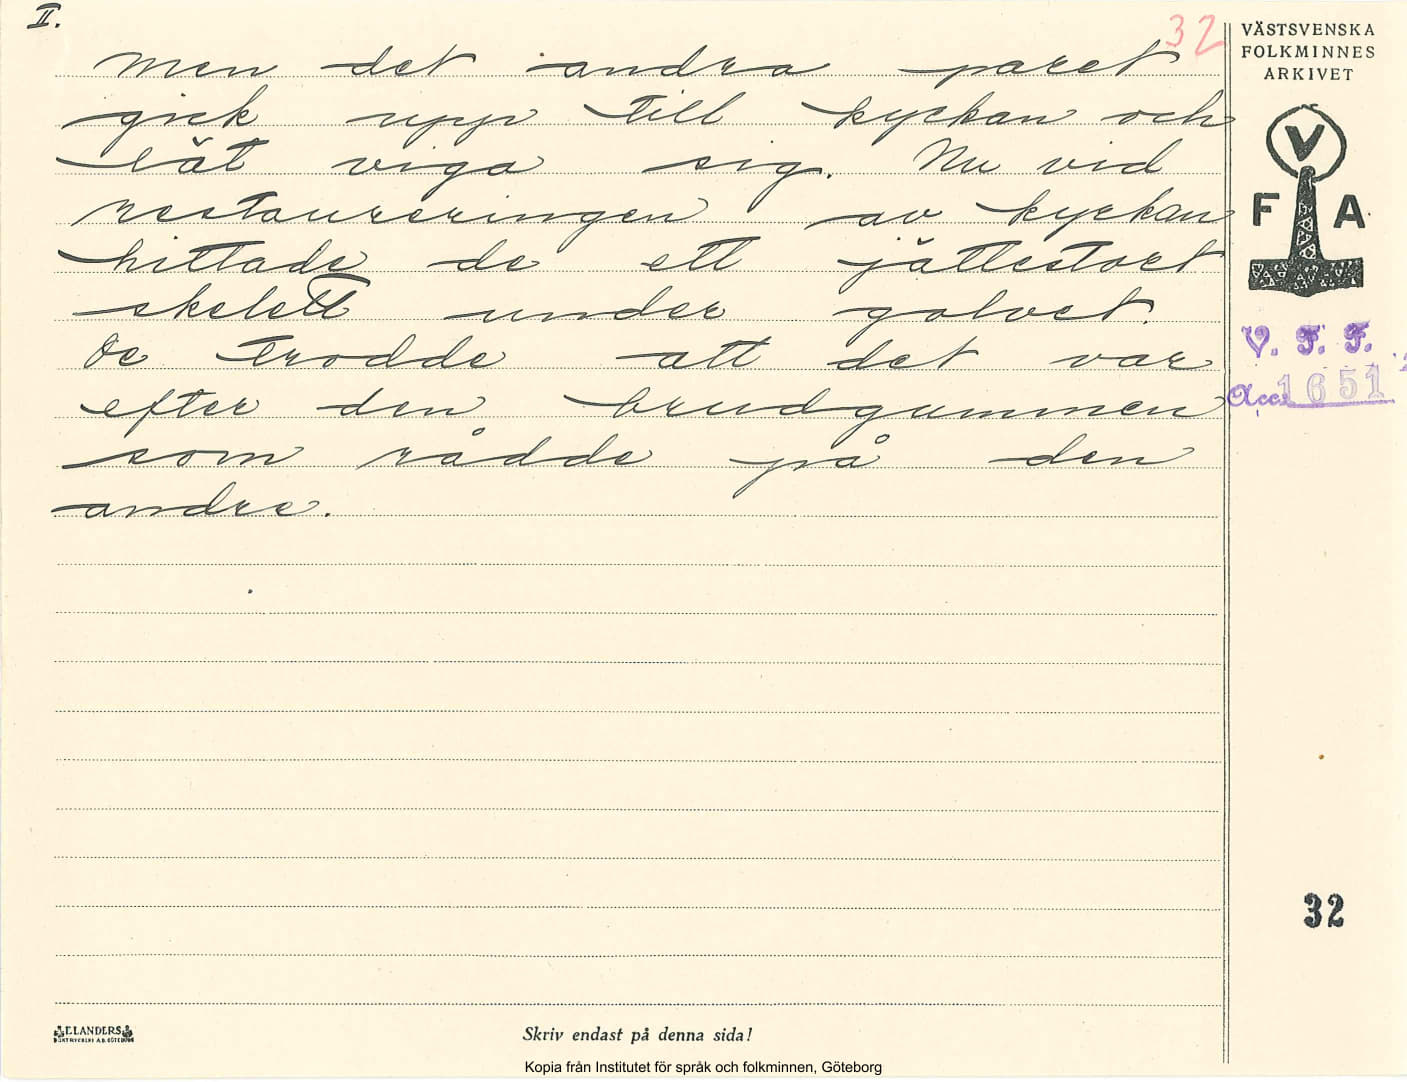 II.
32
men det andra paret
gick upp till kyrkan och
lät viga sig. Nu vid
restaureringen av kyrkan
hittade de ett jättestort
skelett under golvet.
De trodde att det var
efter den brudgummen
som rådde på den
andre.
VÄSTSVENSKA
FOLKMINNES
ARKIVET
V
F A
V. F. F.
Acc. 1651
32
ELANDERS
BOKTRYCKERI A.B. GÖTEBORG
Skriv endast på denna sida!
Kopia från Institutet för språk och folkminnen, Göteborg